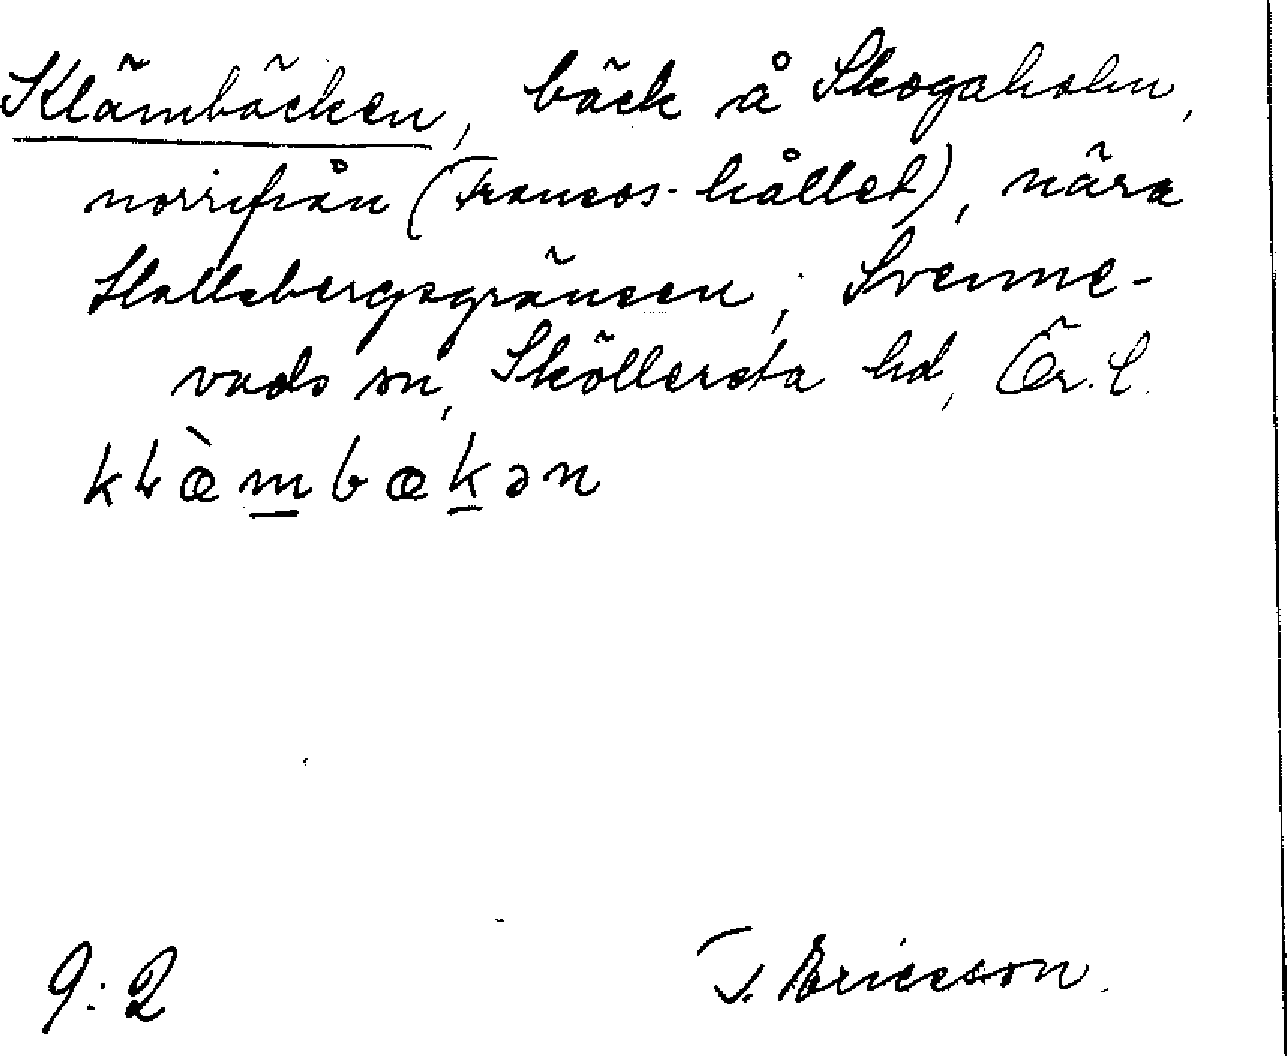 Klämbäcken, bäck å Skogaholm,
norrifrån (Francos-hållet), nära
Hallsbergsgränsen; Svenne-
vads sn, Sköllersta hd, Ör. l.
kɫæ̀m̲bæk̲ən
9:2
T. Ericsson.